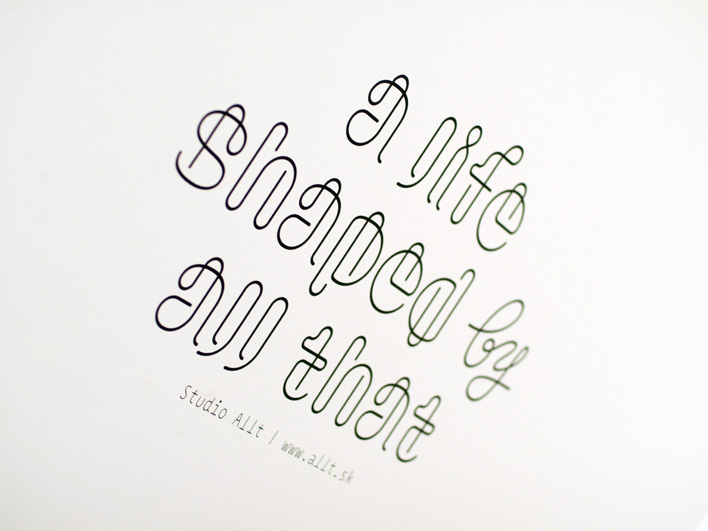 a life
Shaped by
all that
Studio Allt | www.allt.sk